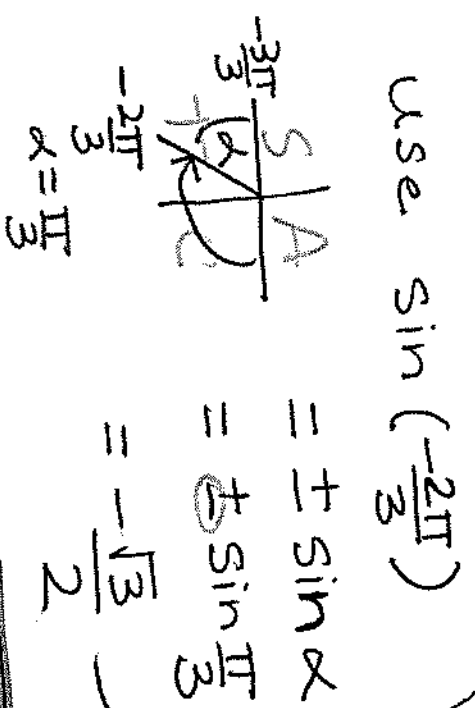 use sin(-2π/3)
= ± sin α
= ± sin π/3
= -√3/2
S A
T C
-3π/3
α
-2π/3
α = π/3